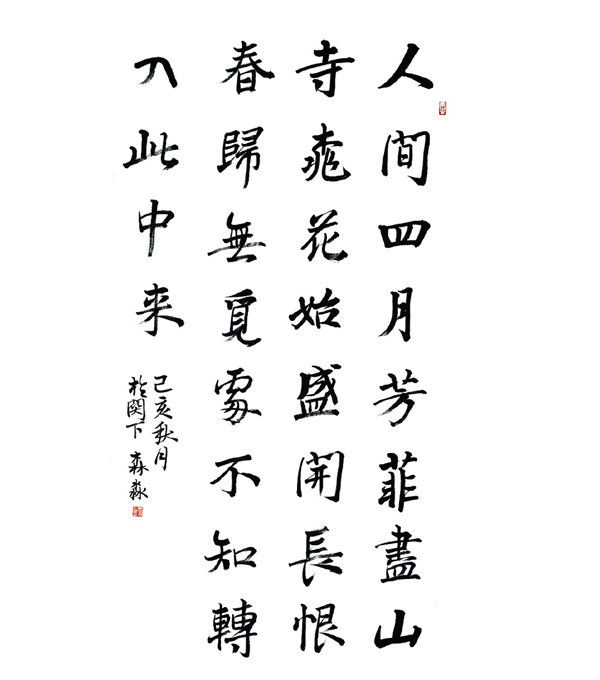 人間四月芳菲盡山
寺桃花始盛開長恨
春歸無覓處不知轉
入此中来
己亥秋月
於閔下森淼